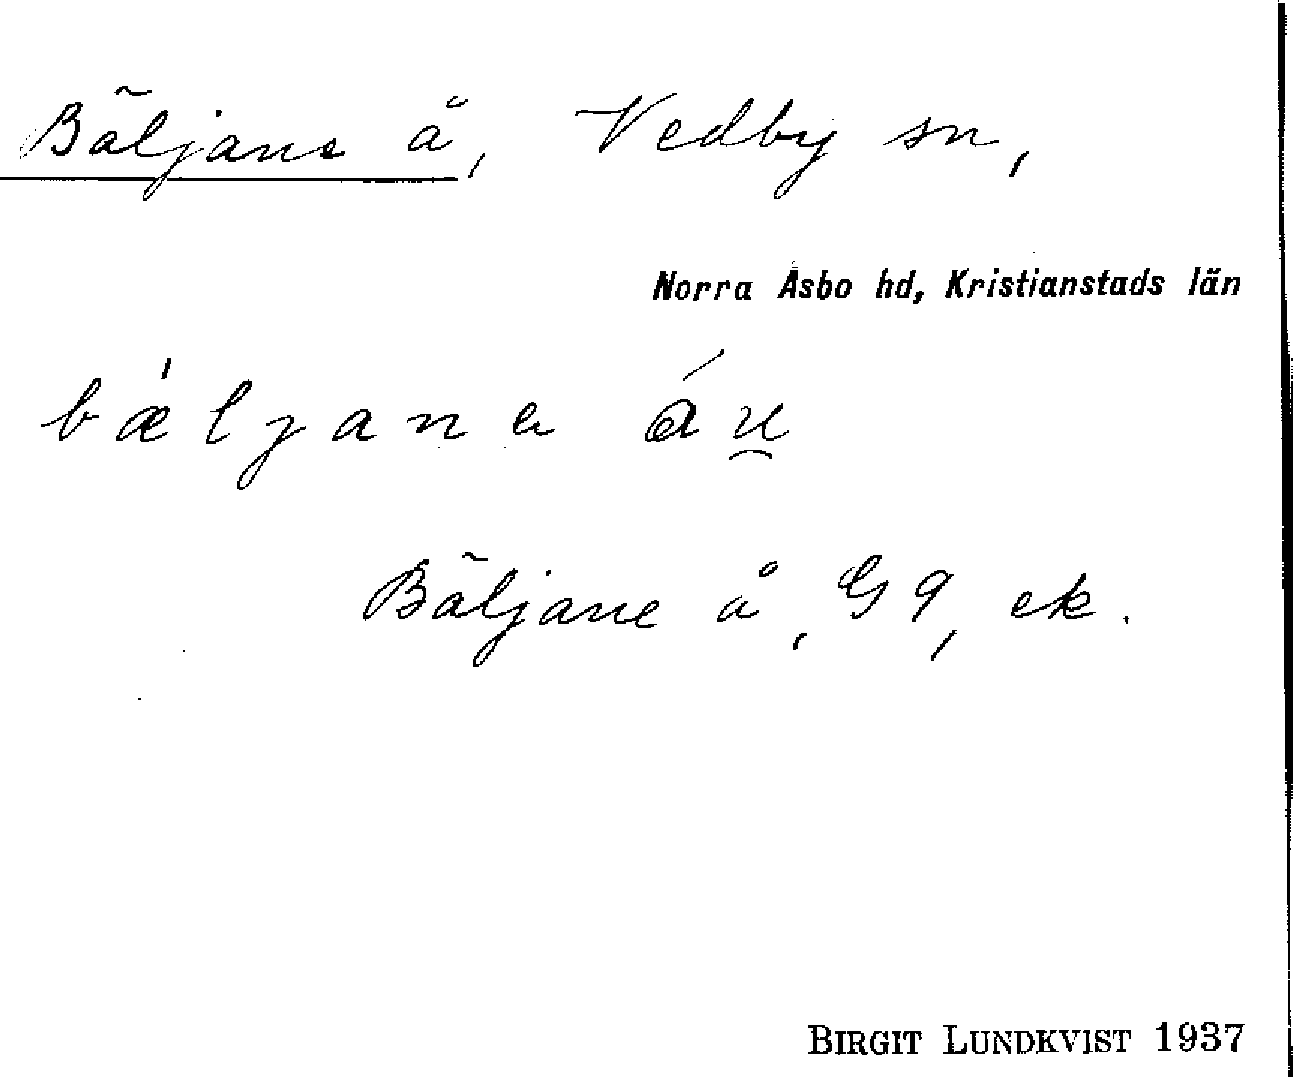 Bäljane å, Vedby sn,
Norra Åsbo hd, Kristianstads län
bæ̍ljana áu̯
Bäljane å, G9, ek.
BIRGIT LUNDKVIST 1937